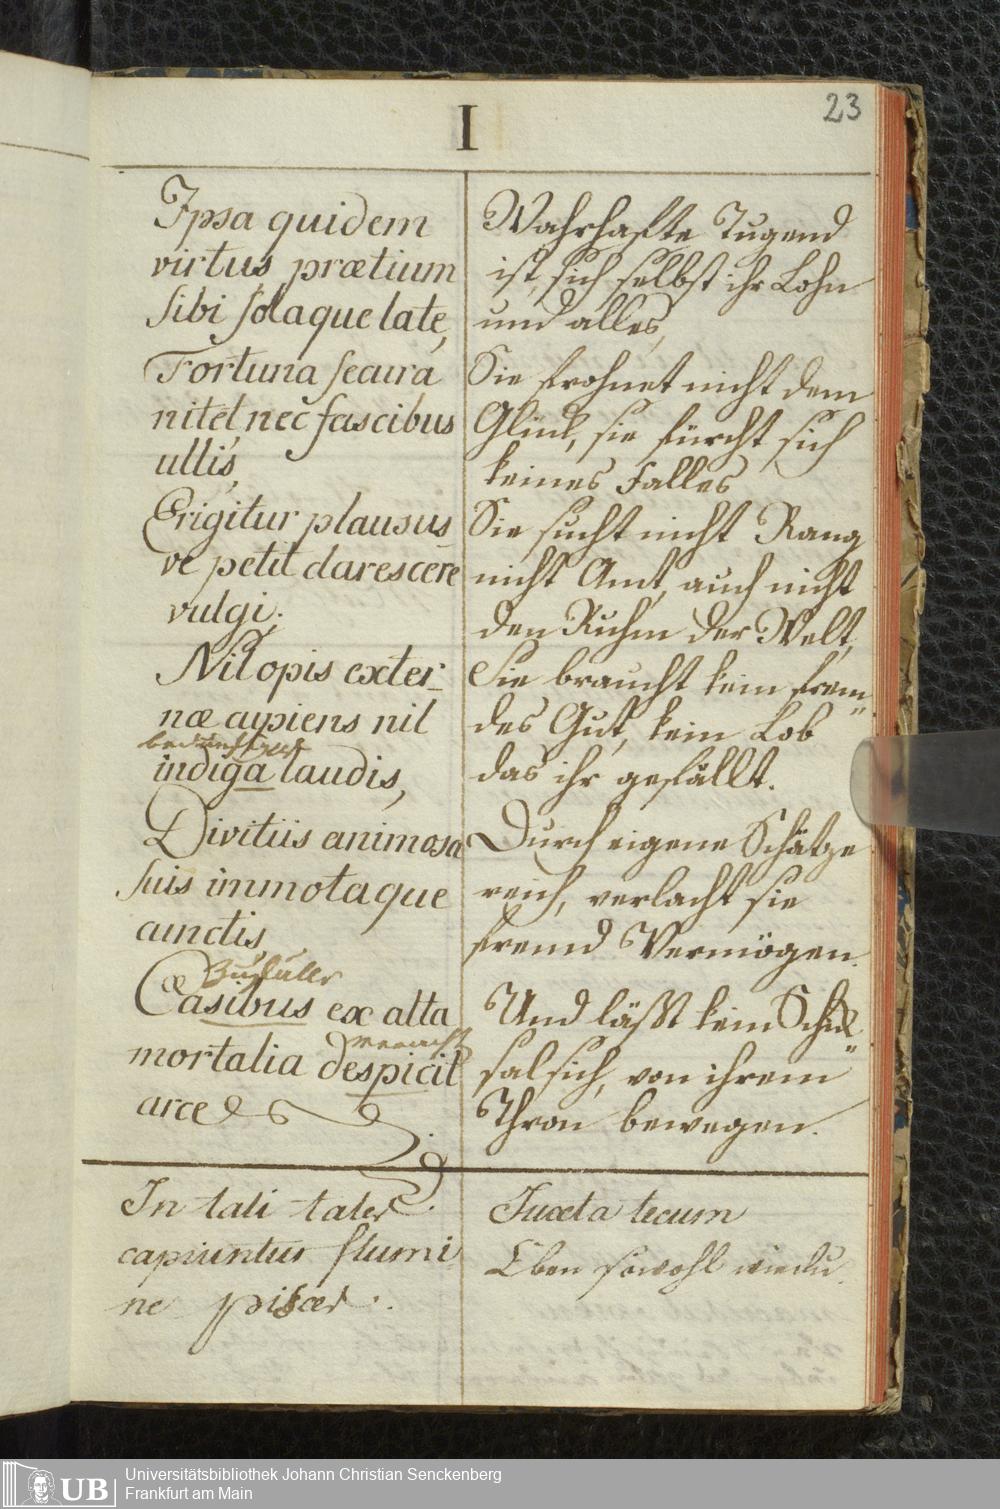 I
23
Ipsa quidem
virtus prætium
sibi solaque late,
Fortuna secura
nitet nec fascibus
ullis,
Erigitur plausus-
ve petit clarescere
vulgi;
Nil opis exter-
næ cupiens nil
indiga laudis,
Divitiis animosa
suis immotaque
cunctis,
Zufälle
Casibus ex alta
veracht
mortalia despicit
arce
Wahrhafte Tugend
ist, sich selbst ihr Lohn
und alles,
Sie frohnet nicht dem
Glück, sie fürcht sich
keines Falles
Sie sucht nicht Rang
nicht Amt, auch nicht
den Ruhm der Welt,
Sie braucht kein frem-
des Gut, kein Lob
das ihr gefällt.
Durch eigene Schätze
reich, verlacht sie
fremd Vermögen.
Und läßt kein Schik-
sal sich, von ihrem
Thron bewegen.
In tali tales
capiuntur flumi
ne pisces.
Juxta tecum
Eben sowohl wie du.
UB
Universitätsbibliothek Johann Christian Senckenberg
Frankfurt am Main